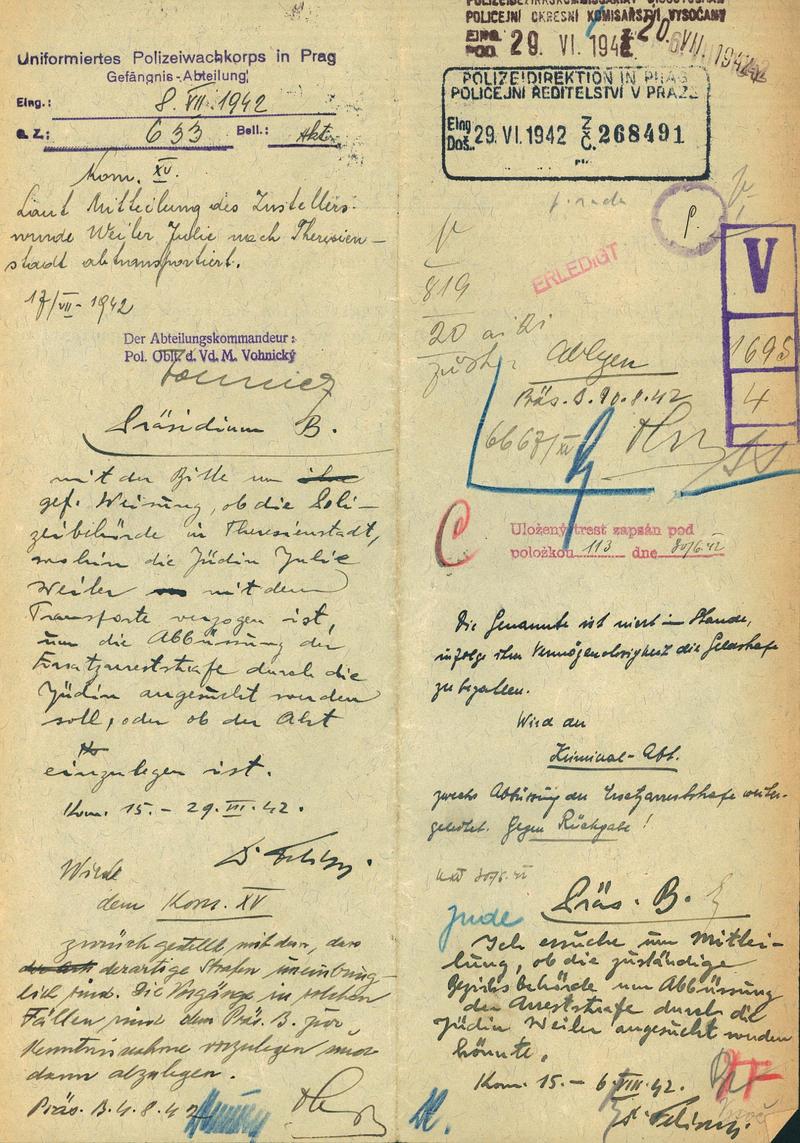 Uniformiertes Polizeiwachkorps in Prag
Gefängnis-Abteilung
Eing.: 8. VII. 1942
G. Z.: 633 Beil.: Akt
Kom. XV.
Laut Mitteilung des Zustellers
wurde Weiler Julie nach Theresien-
stadt abtransportiert.
17/VII - 1942
Der Abteilungskommandeur:
Pol. Oblt. d. Vd. M. Vohnický
Präsidium B.
mit der Bitte um
gef. Weisung, ob die Poli-
zeibehörde in Theresienstadt,
wohin die Jüdin Julie
Weiler mit dem
Transporte verzogen ist,
um die Abbüssung der
Ersatzarreststrafe durch die
Jüdin angesucht werden
soll, oder ob der Akt
einzulegen ist.
Kom. 15. - 29. VII. 42.
Wird
dem Kom. XV
zurückgestellt mit dem, dass
derartige Strafen uneinbring-
lich sind. Die Vorgänge in solchen
Fällen sind dem Präs. B. zur
Kenntnisnahme vorzulegen und
dann abzulegen.
Präs. B. 4. 8. 42
POLICEJNÍ OKRESNÍ KOMISAŘSTVÍ VYSOČANY
EING.
POD. 29. VI. 1942 20. VII. 1942
POLIZEIDIREKTION IN PRAG
POLICEJNÍ ŘEDITELSTVÍ V PRAZE
Eing.
Doš. 29. VI. 1942 Z. Č. 268491
P.
ERLEDIGT
V
1695
4
819
20
Ablegen
Präs. B. 20. 8. 42
6667/XV
Uložený trest zapsán pod
položkou 113 dne 30/6. 42
Die Genannte ist nicht im Stande,
infolge ihrer Vermögenslosigkeit die Geldstrafe
zu bezahlen.
Wird der
Kriminal-Abt.
zwecks Abbüssung der Ersatzarreststrafe weiter-
geleitet. Gegen Rückgabe!
30/6. 42
Jude
Präs. B.
Ich ersuche um Mittei-
lung, ob die zuständige
Bezirksbehörde um Abbüssung
der Arreststrafe durch die
Jüdin Weiler angesucht werden
könnte.
Kom. 15. - 6. VIII. 42.